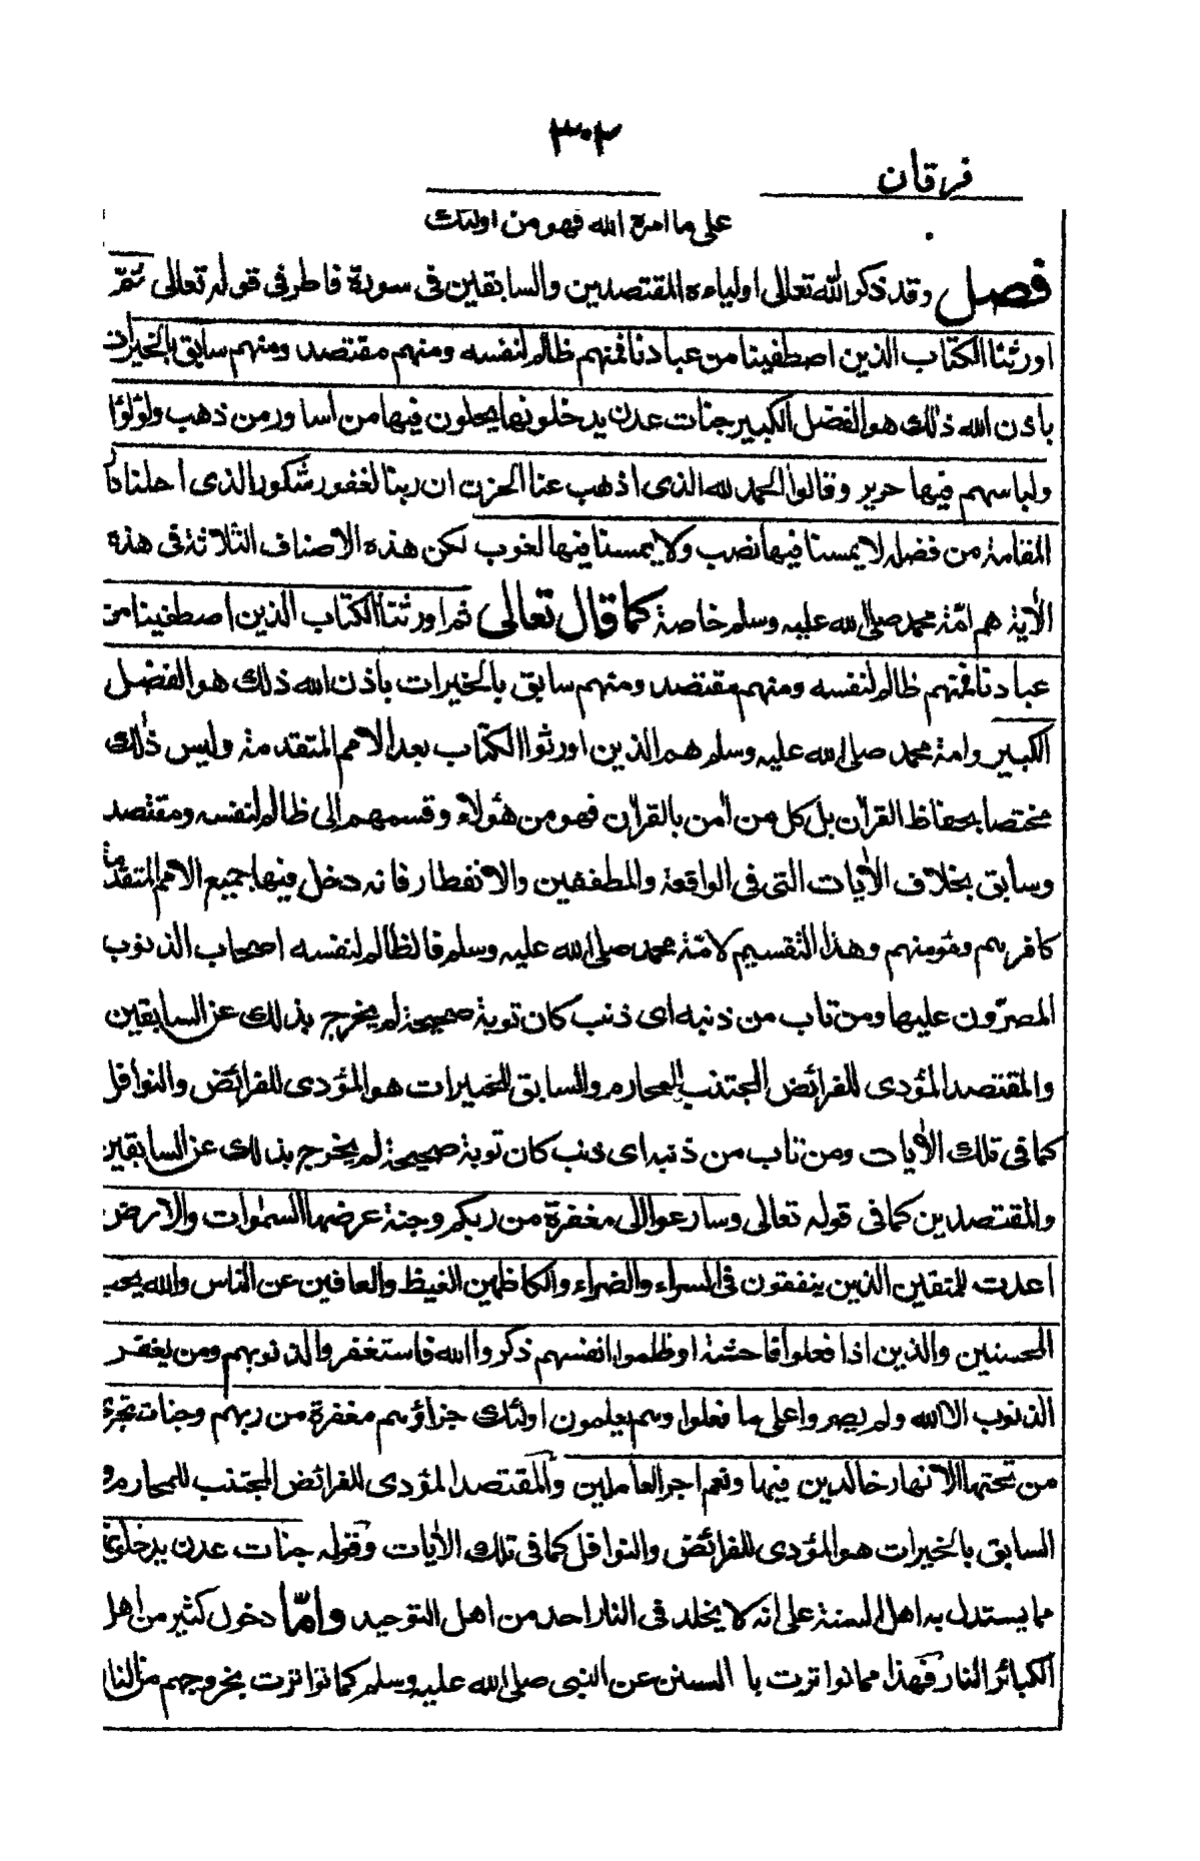 ٣٠٢
فرقان
على ما امره الله فهو من اولئك
فصل وقد ذكر الله تعالى اولياءه المقتصدين والسابقين فى سورة فاطر فى قوله تعالى ثمّ
اورثنا الكتاب الذين اصطفينا من عبادنا فمنهم ظالم لنفسه ومنهم مقتصد ومنهم سابق بالخيرات
باذن الله ذلك هو الفضل الكبير جنات عدن يدخلونها يحلون فيها من اساور من ذهب ولؤلؤا
ولباسهم فيها حرير وقالوا الحمد لله الذى اذهب عنا الحزن ان ربنا لغفور شكور الذى احلنا دار
المقامة من فضله لا يمسنا فيها نصب ولا يمسنا فيها لغوب لكن هذه الاصناف الثلاثة فى هذه
الأية هم امّة محمد صلى الله عليه وسلم خاصة كما قال تعالى ثم اورثنا الكتاب الذين اصطفينا من
عبادنا فمنهم ظالم لنفسه ومنهم مقتصد ومنهم سابق بالخيرات باذن الله ذلك هو الفضل
الكبير وامة محمد صلى الله عليه وسلم هم الذين اورثوا الكتاب بعد الامم المتقدمة وليس ذلك
مختصا بحفاظ القرأن بل كل من أمن بالقرأن فهو من هؤلاء وقسمهم الى ظالم لنفسه ومقتصد
وسابق بخلاف الأيات التى فى الواقعة والمطففين والانفطار فانه دخل فيها جميع الامم المتقدمة
كافرهم ومؤمنهم وهذا التقسيم لامّة محمد صلى الله عليه وسلم فالظالم لنفسه اصحاب الذنوب
المصرّون عليها ومن تاب من ذنبه اى ذنب كان توبة صحيحة لم يخرج بذلك عن السابقين
والمقتصد المؤدى للفرائض المجتنب للمحارم والسابق للخيرات هو المؤدى للفرائض والنوافل
كما فى تلك الأيات ومن تاب من ذنبه اى ذنب كان توبة صحيحة لم يخرج بذلك عن السابقين
والمقتصدين كما فى قوله تعالى وسارعوا الى مغفرة من ربكم وجنة عرضها السموات والارض
اعدت للمتقين الذين ينفقون فى السراء والضراء والكاظمين الغيظ والعافين عن الناس والله يحب
المحسنين والذين اذا فعلوا فاحشة او ظلموا انفسهم ذكروا الله فاستغفروا لذنوبهم ومن يغفر
الذنوب الا الله ولم يصروا على ما فعلوا وهم يعلمون اولئك جزاؤهم مغفرة من ربهم وجنات تجرى
من تحتها الانهار خالدين فيها ونعم اجر العاملين والمقتصد المؤدى للفرائض المجتنب للمحارم و
السابق بالخيرات هو المؤدى للفرائض والنوافل كما فى تلك الأيات وقوله جنات عدن يدخلونها
مما يستدل به اهل السنة على انه لا يخلد فى النار احد من اهل التوحيد وامّا دخول كثير من اهل
الكبائر النار فهذا مما تواترت با السنن عن النبى صلى الله عليه وسلم كما تواترت بخروجهم من النار